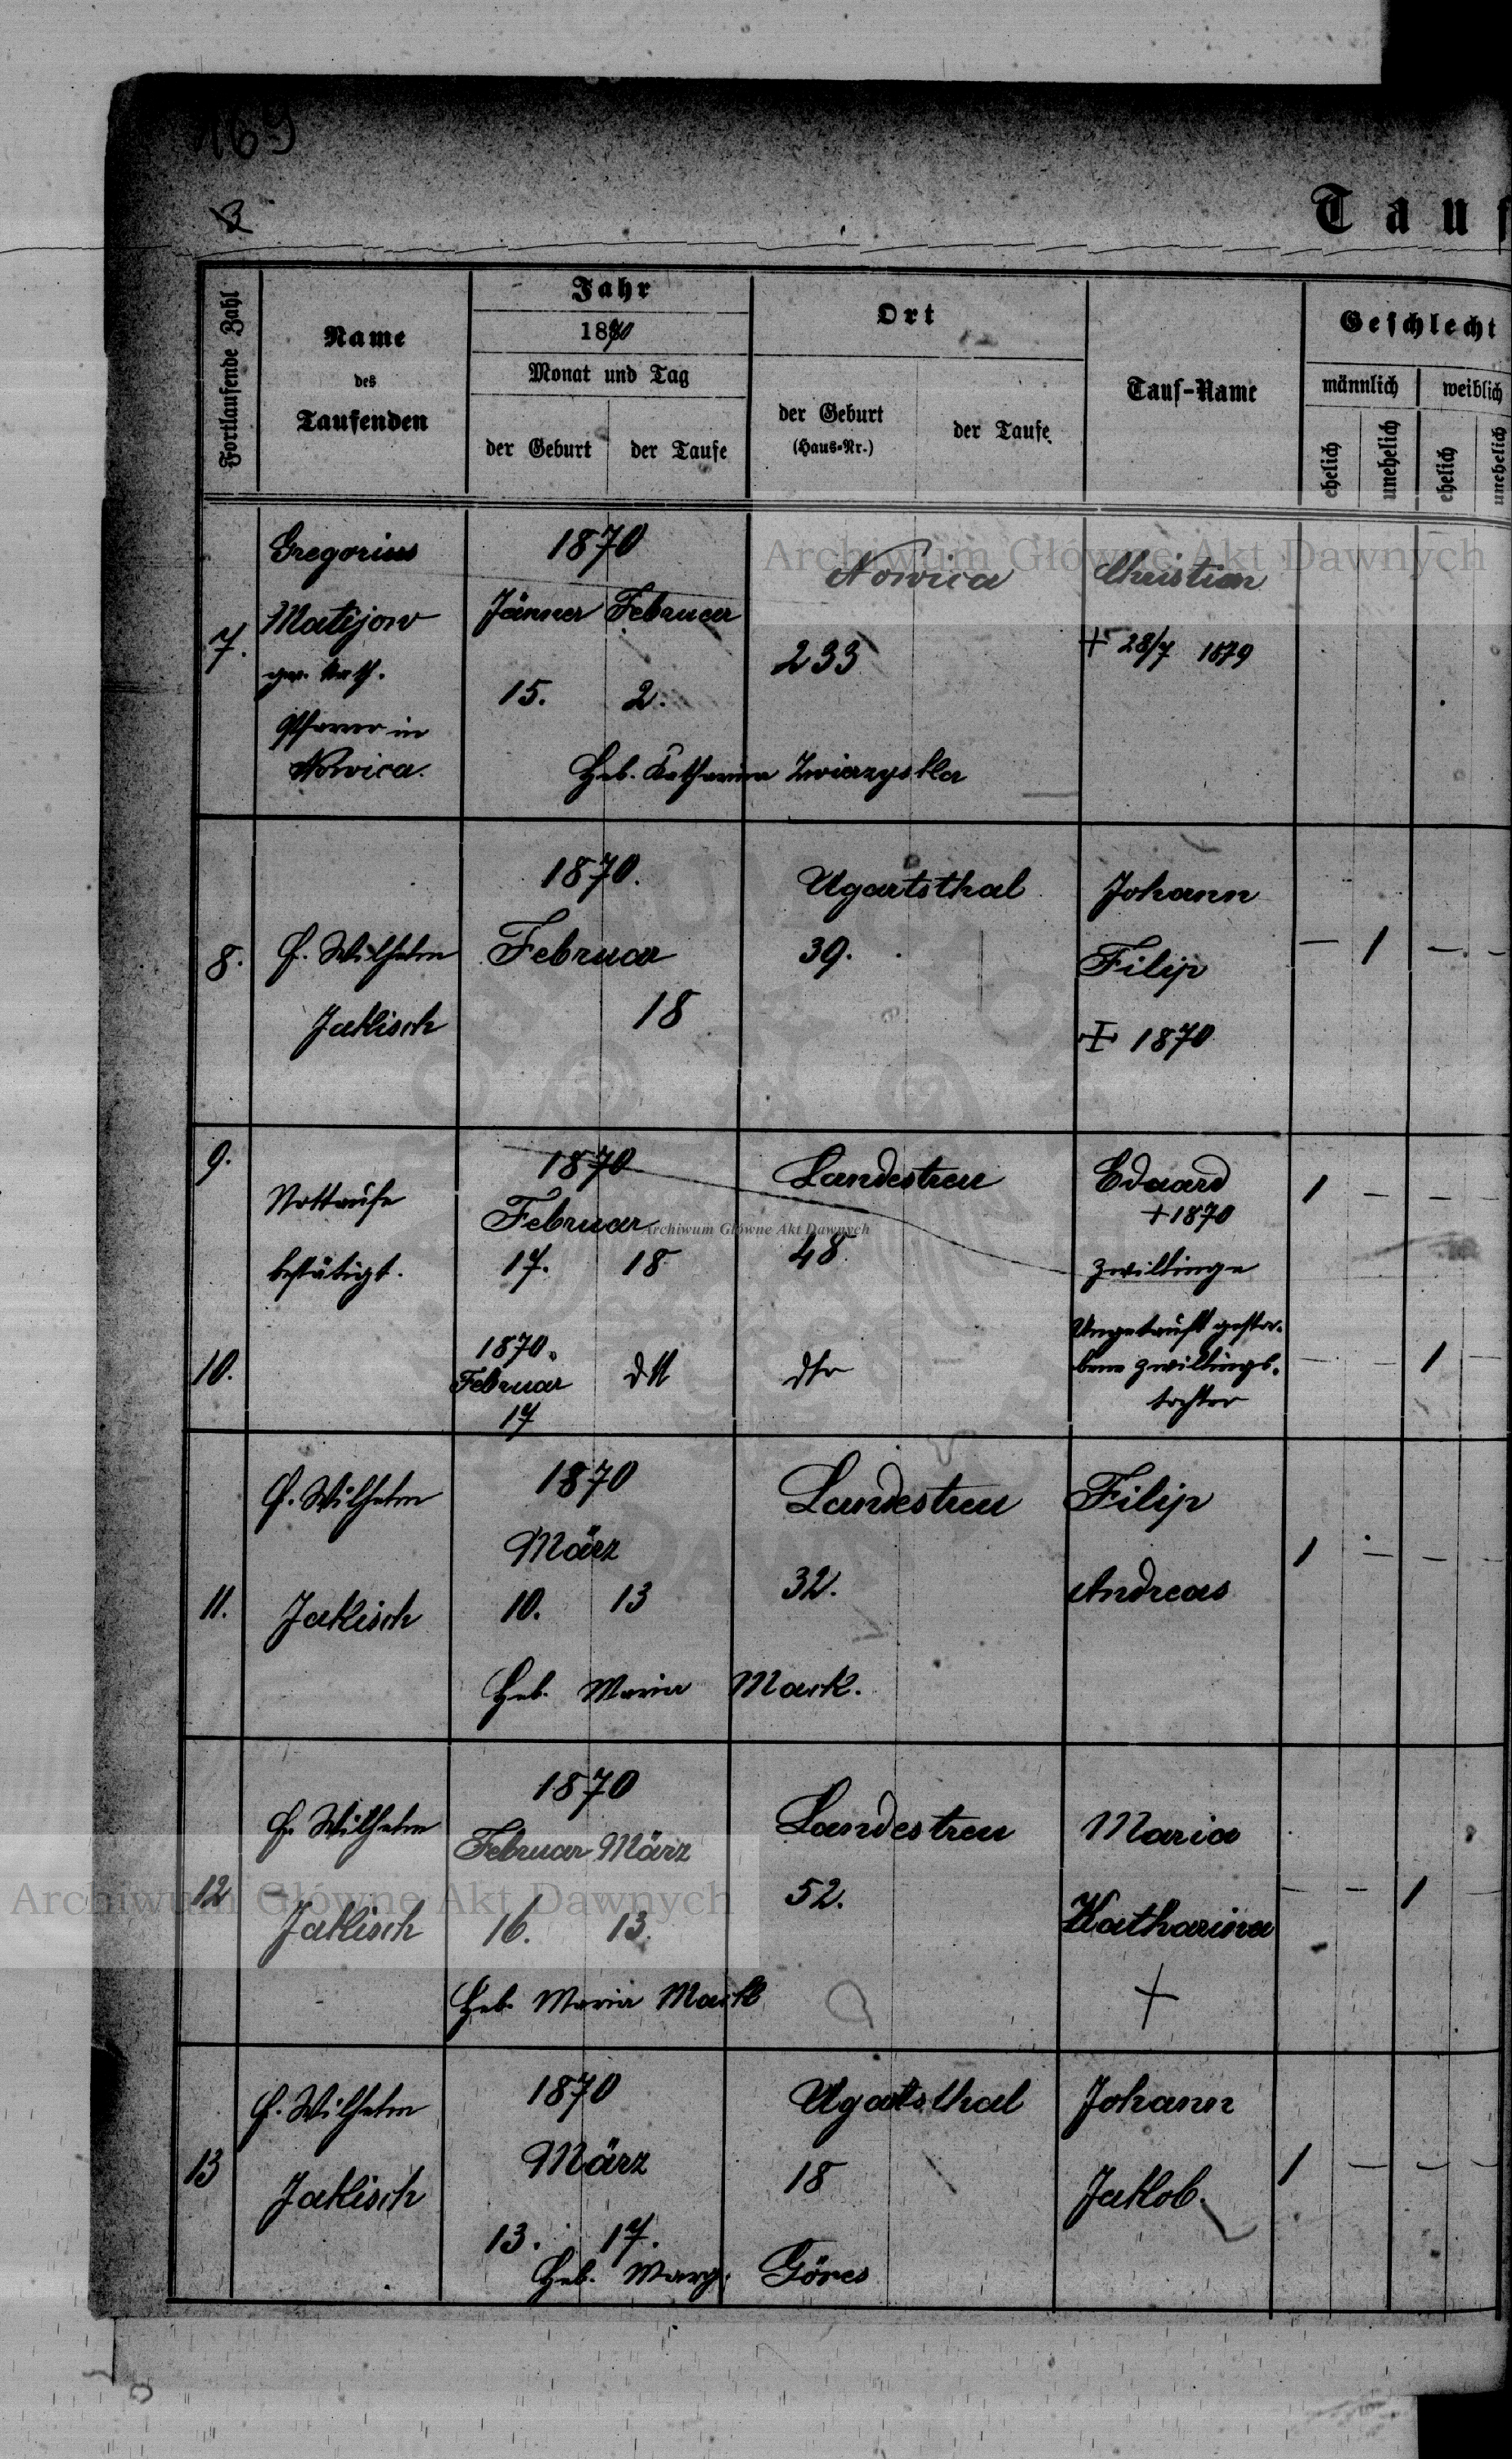 169
3
Tauf
Fortlaufende Zahl
Name
des
Taufenden
Jahr
1870
Monat und Tag
der Geburt
der Taufe
Ort
der Geburt
(Haus-Nr.)
der Taufe
Tauf-Name
Geschlecht
männlich
weiblich
ehelich
unehelich
ehelich
unehelich
Archiwum Główne Akt Dawnych
7.
Gregorius
Matijow
gr. kath.
Pfarrer in
Nowica.
1870
Jänner Februar
15. 2.
Nowica
233
Christian
+ 28/7 1879
Heb. Katharina Zwierzyska
8.
P. Wilhelm
Jakisch
1870.
Februar
18
Ugartsthal
39.
Johann
Filip
+ 1870
— 1 — -
9.
Nottaufe
bestätigt.
1870
Februar
17. 18
Landestreu
48
Eduard
+ 1870
Zwillinge
1 — — —
Archiwum Główne Akt Dawnych
10.
1870.
Februar
17
dtt
dto
Ungetauft gestor-
bene Zwillings-
tochter
— — 1 —
11.
P. Wilhelm
Jakisch
1870
März
10. 13
Landestreu
32.
Filip
Andreas
1 — — —
Heb. Maria Mark.
12
P. Wilhelm
Jakisch
1870
Februar März
16. 13.
Landestreu
52.
Maria
Katharina
+
— — 1 —
Heb. Maria Mark
Archiwum Główne Akt Dawnych
13
P. Wilhelm
Jakisch
1870
März
13. 17.
Ugartsthal
18
Johann
Jakob.
1 — — —
Heb. Marg. Göres